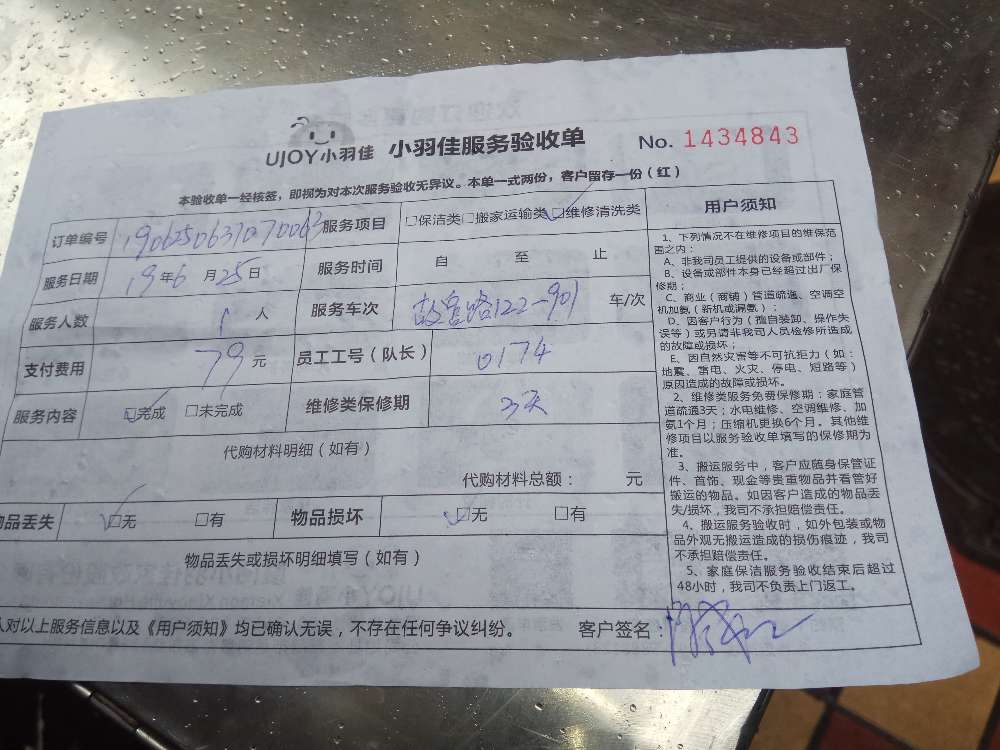 UJOY小羽佳 小羽佳服务验收单 No. 1434843
本验收单一经核签，即视为对本次服务验收无异议。本单一式两份，客户留存一份（红）
订单编号 190625063707006 服务项目 □保洁类□搬家运输类☑维修清洗类
服务日期 19年6月25日 服务时间 自 至 止
服务人数 1 人 服务车次 故宫路122-901 车/次
支付费用 79 元 员工工号（队长） 0174
服务内容 ☑完成 □未完成 维修类保修期 3天
代购材料明细（如有）
代购材料总额： 元
品丢失 ☑无 □有 物品损坏 ☑无 □有
物品丢失或损坏明细填写（如有）
对以上服务信息以及《用户须知》均已确认无误，不存在任何争议纠纷。 客户签名：
用户须知
1、下列情况不在维修项目的维保范
围之内：
A、非我司员工提供的设备或部件；
B、设备或部件本身已经超过出厂保
修期；
C、商业（商铺）管道疏通、空调空
机加氨（新机或漏氨）；
D、因客户行为（擅自装卸、操作失
误等）或另请非我司人员检修所造成
的故障或损坏；
E、因自然灾害等不可抗拒力（如：
地震、雷电、火灾、停电、短路等）
原因造成的故障或损坏。
2、维修类服务免费保修期：家庭管
道疏通3天；水电维修、空调维修、加
氨1个月；压缩机更换6个月。其他维
修项目以服务验收单填写的保修期为
准。
3、搬运服务中，客户应随身保管证
件、首饰、现金等贵重物品并看管好
搬运的物品。如因客户造成的物品丢
失/损坏，我司不承担赔偿责任。
4、搬运服务验收时，如外包装或物
品外观无搬运造成的损伤痕迹，我司
不承担赔偿责任。
5、家庭保洁服务验收结束后超过
48小时，我司不负责上门返工。